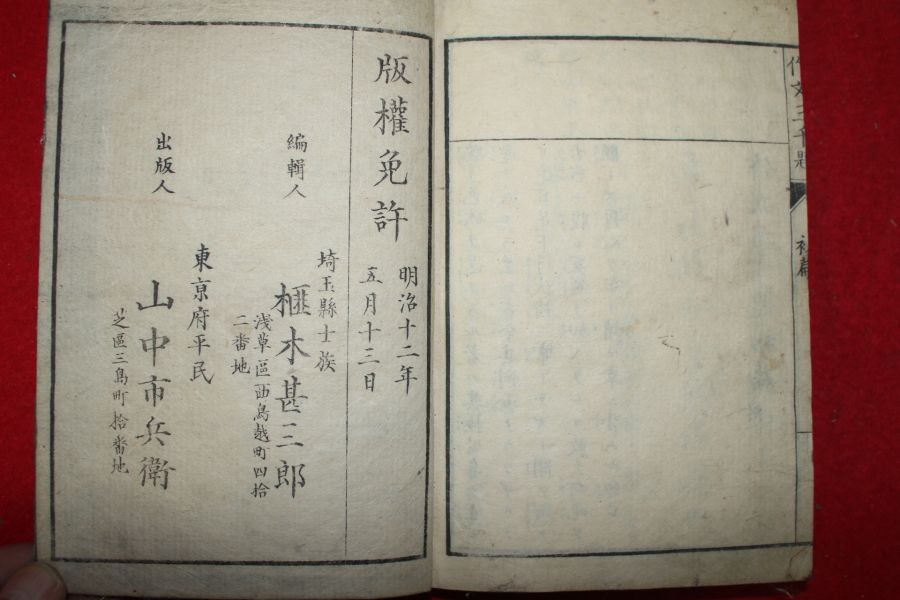 作文三千題
初篇
版權免許
明治十二年
五月十三日
編輯人
埼玉縣士族
榧木甚三郎
淺草區西鳥越町四拾
二番地
出版人
東京府平民
山中市兵衛
芝區三島町拾番地